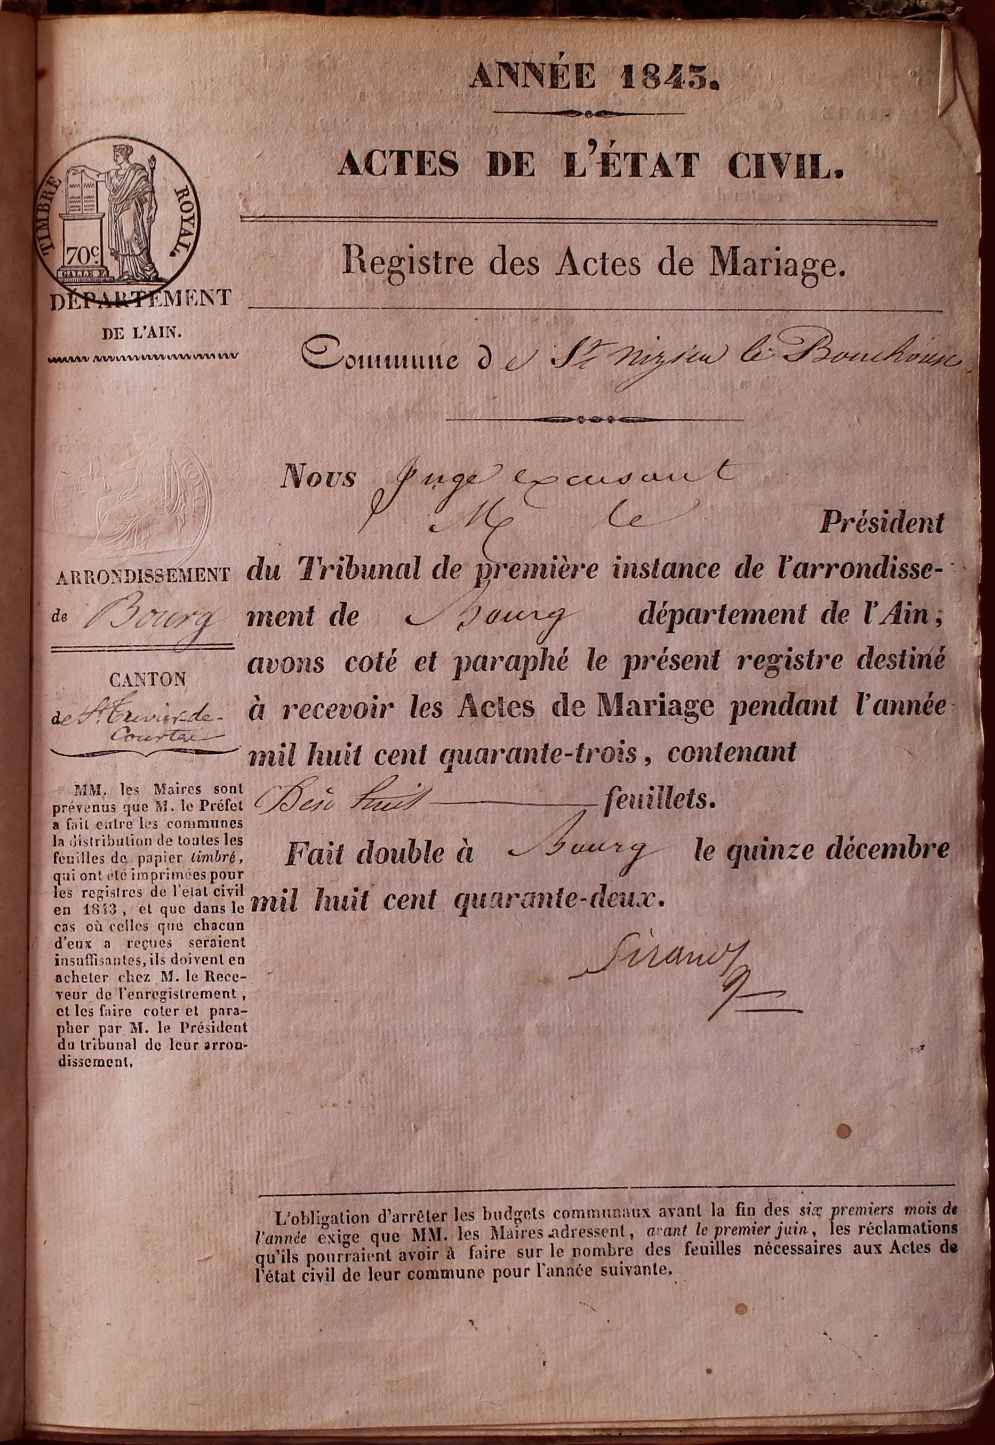 ANNÉE 1843.
ACTES DE L'ÉTAT CIVIL.
TIMBRE ROYAL.
70c
DÉPARTEMENT
DE L'AIN.
Registre des Actes de Mariage.
Commune de St nizier le Bouchoux
ARRONDISSEMENT
de Bourg
CANTON
de St Trivier-de-
Courtes
MM. les Maires sont
prévenus que M. le Préfet
a fait entre les communes
la distribution de toutes les
feuilles de papier timbré,
qui ont été imprimées pour
les registres de l'état civil
en 1843, et que dans le
cas où celles que chacun
d'eux a reçues seraient
insuffisantes, ils doivent en
acheter chez M. le Rece-
veur de l'enregistrement,
et les faire coter et para-
pher par M. le Président
du tribunal de leur arron-
dissement.
Nous Juge excusant
M le Président
du Tribunal de première instance de l'arrondisse-
ment de Bourg département de l'Ain;
avons coté et paraphé le présent registre destiné
à recevoir les Actes de Mariage pendant l'année
mil huit cent quarante-trois, contenant
huit feuillets.
Fait double à Bourg le quinze décembre
mil huit cent quarante-deux.
Sirand
L'obligation d'arrêter les budgets communaux avant la fin des six premiers mois de
l'année exige que MM. les Maires adressent, avant le premier juin, les réclamations
qu'ils pourraient avoir à faire sur le nombre des feuilles nécessaires aux Actes de
l'état civil de leur commune pour l'année suivante.